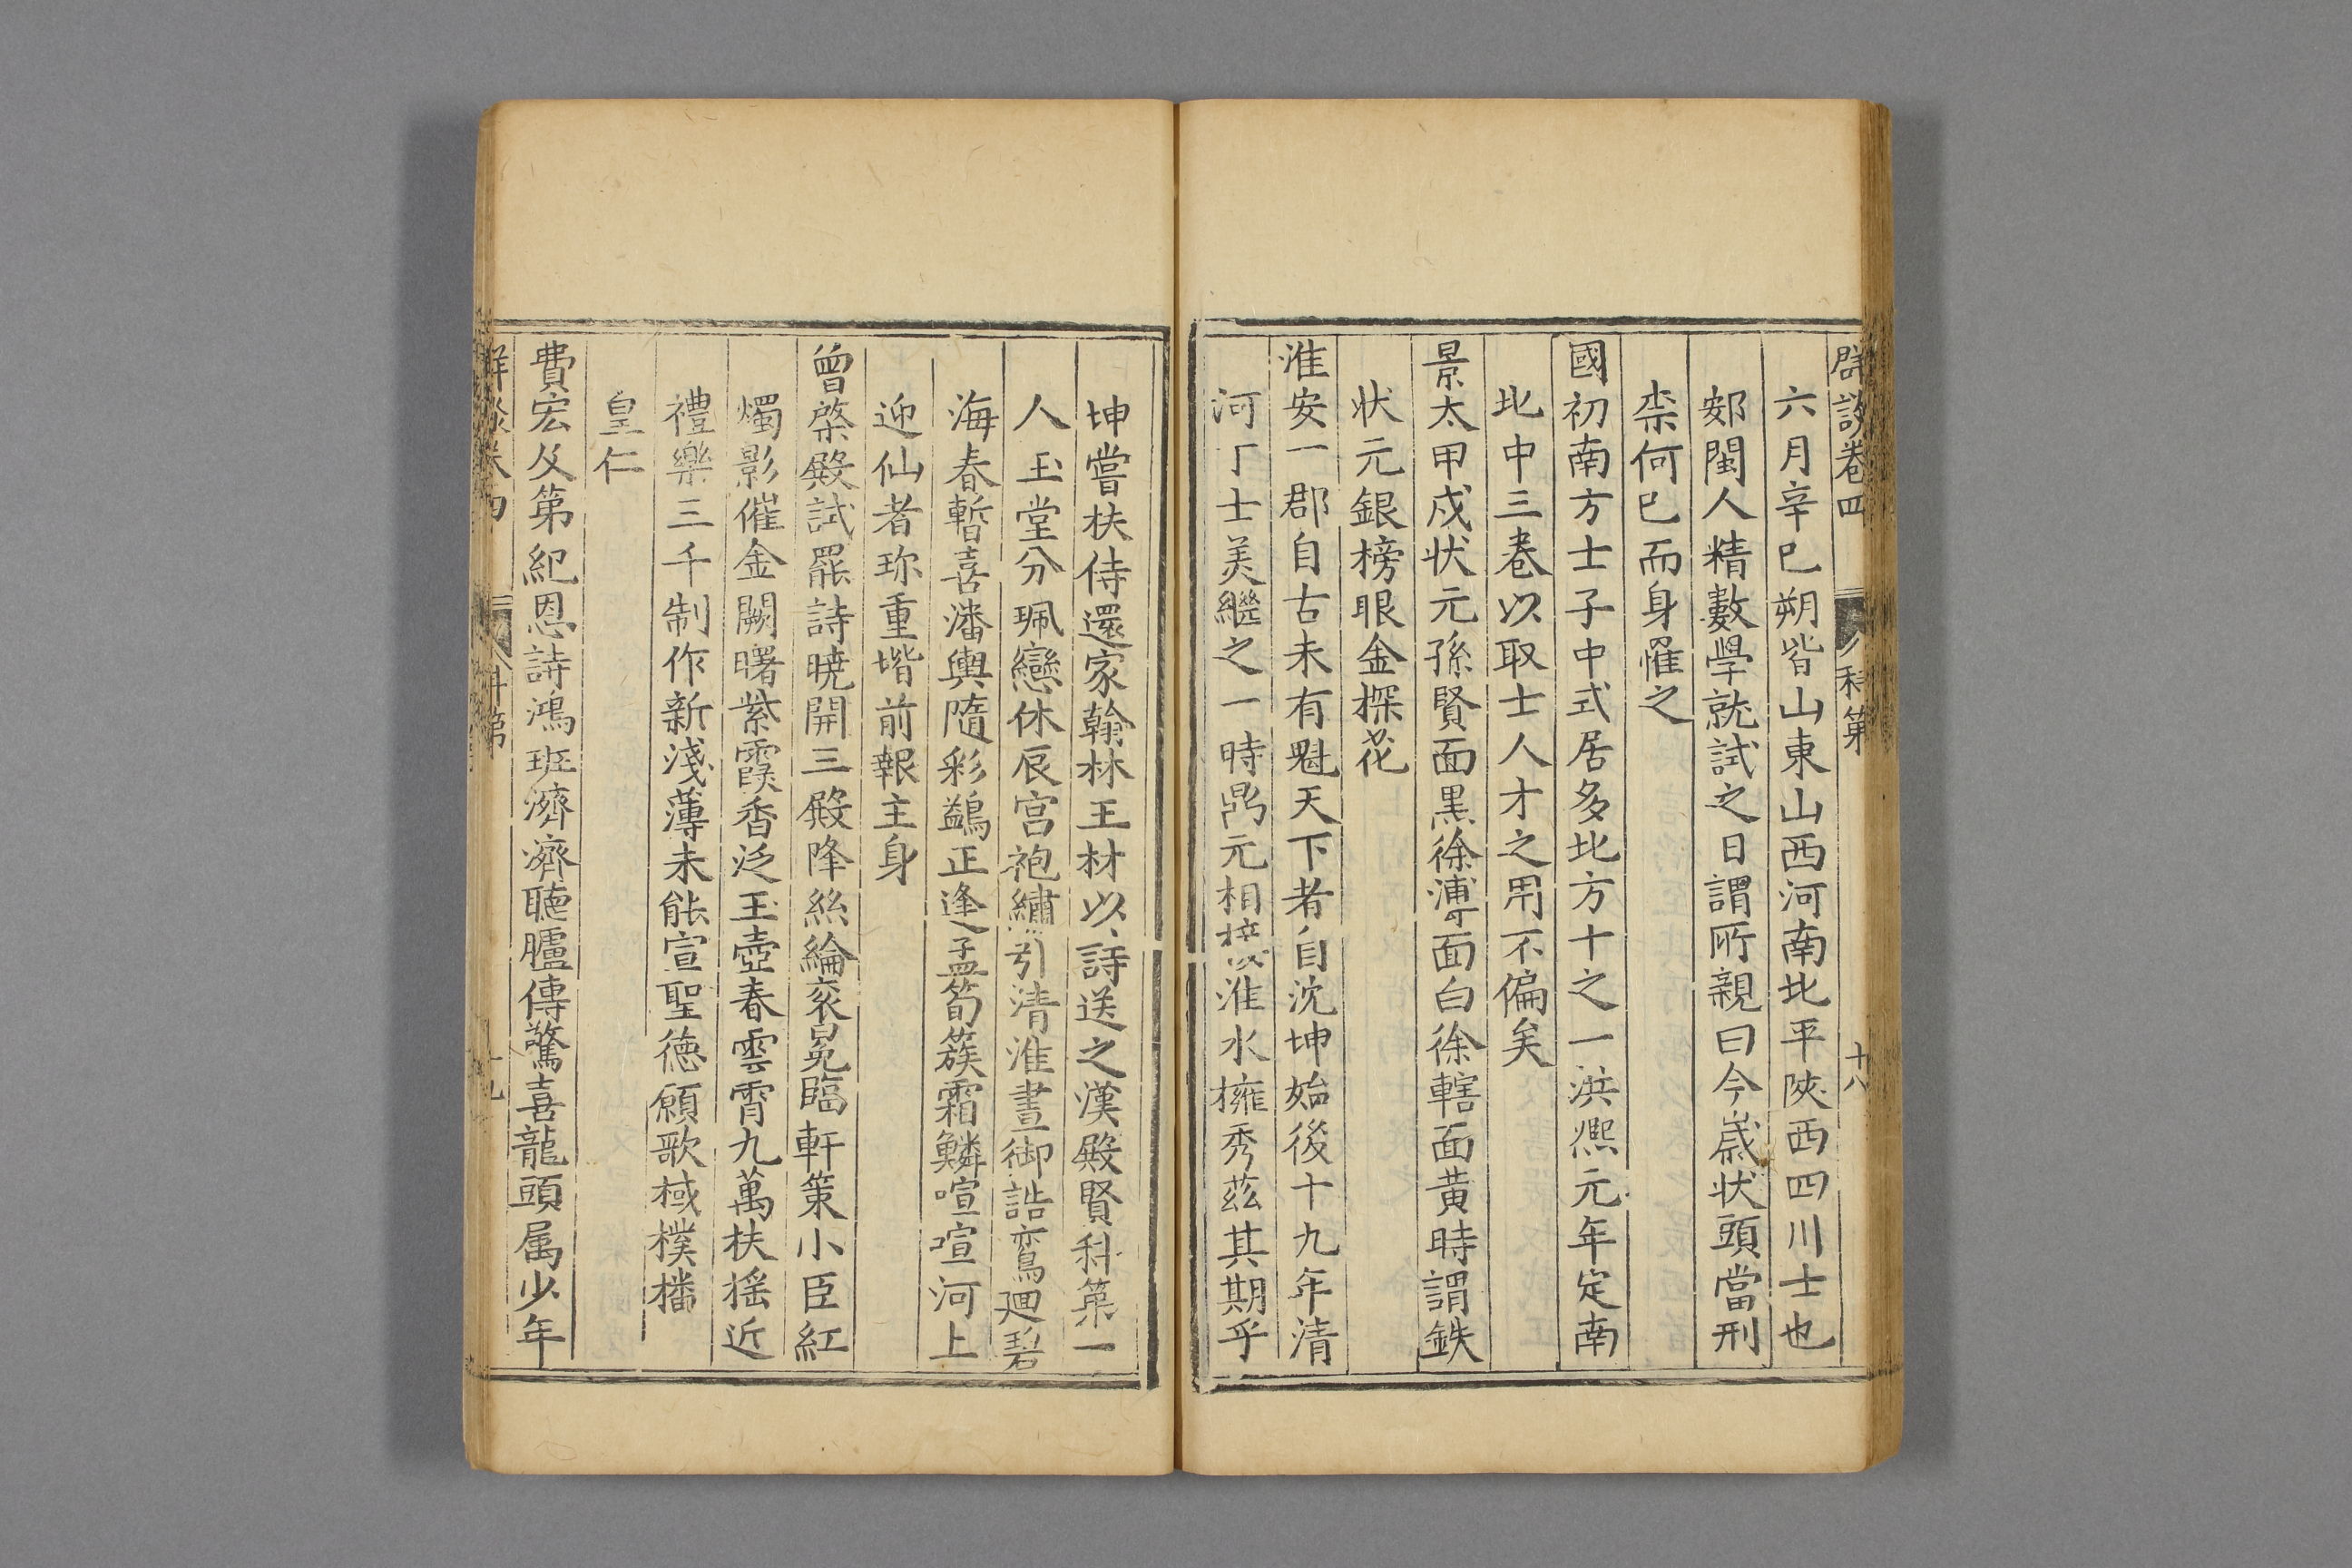 群談卷四 科第 十八
六月辛巳朔皆山東山西河南北平陝西四川士也
郊閩人精數學就試之日謂所親曰今歲状頭當刑
柰何巳而身罹之
國初南方士子中式居多北方十之一洪熈元年定南
北中三巻以取士人才之用不偏矣
景太甲戍状元孫賢面黒徐溥面白徐轄面黄時謂鉄
状元銀榜眼金探花
淮安一郡自古未有魁天下者自沈坤始後十九年清
河丁士美繼之一時鼎元相接淮水擁秀茲其期乎
坤嘗扶侍還家翰林王材以詩送之漢殿賢科第一
人玉堂分珮戀休辰宫袍繡引清淮晝御誥鸞廻碧
海春暫喜潘輿隨彩鷁正逢孟筍簇霜鱗喧喧河上
迎仙者珎重堦前報主身
曾棨殿試罷詩曉開三殿降絲綸衮冕臨軒策小臣紅
燭影催金闕曙紫霞香泛玉壺春雲霄九萬扶摇近
禮樂三千制作新淺薄未能宣聖徳願歌棫樸播
皇仁
費宏父第紀恩詩鴻班濟濟聽臚傳驚喜龍頭属少年
群談卷四 科第 十九